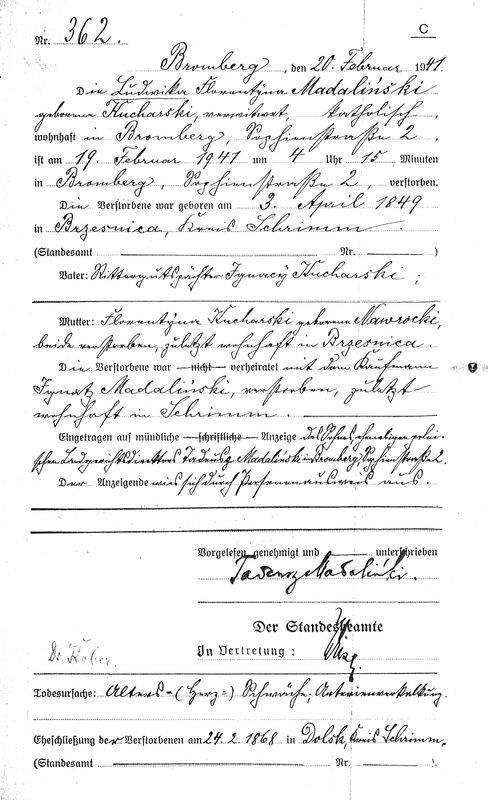 C
Nr. 362.
Bromberg, den 20. Februar 1941.
Die Ludwika Florentÿna Madaliński
geborene Kucharski, verwitwet, katholisch,
wohnhaft in Bromberg, Sophienstraße 2.
ist am 19. Februar 1941 um 4 Uhr 15 Minuten
in Bromberg, Sophienstraße 2, verstorben.
Die Verstorbene war geboren am 3. April 1849
in Brzesnica, Kreis Schrimm.
(Standesamt Nr. )
Vater: Rittergutspächter Ignacÿ Kucharski;
Mutter: Florentÿna Kucharski geborene Nawrocki,
beide verstorben, zuletzt wohnhaft in Brzesnica.
Die Verstorbene war nicht verheiratet mit dem Kaufmann
Ignatz Madaliński, verstorben, zuletzt
wohnhaft in Schrimm.
Eingetragen auf mündliche schriftliche Anzeige des Sohnes, ehemaligen polni-
schen Landgerichtsdirektors Tadeusz Madaliński Bromberg, Sophienstraße 2.
Der Anzeigende wies sich durch Personenausweis aus.
Vorgelesen, genehmigt und unterschrieben
Tadeusz Madaliński.
Der Standesbeamte
In Vertretung:
Dr. Kober.
Todesursache: Alters-(Herz-) Schwäche; Arterienverkalkung.
Eheschließung der Verstorbenen am 24. 2. 1868 in Dolsk, Kreis Schrimm.
(Standesamt Nr. ).